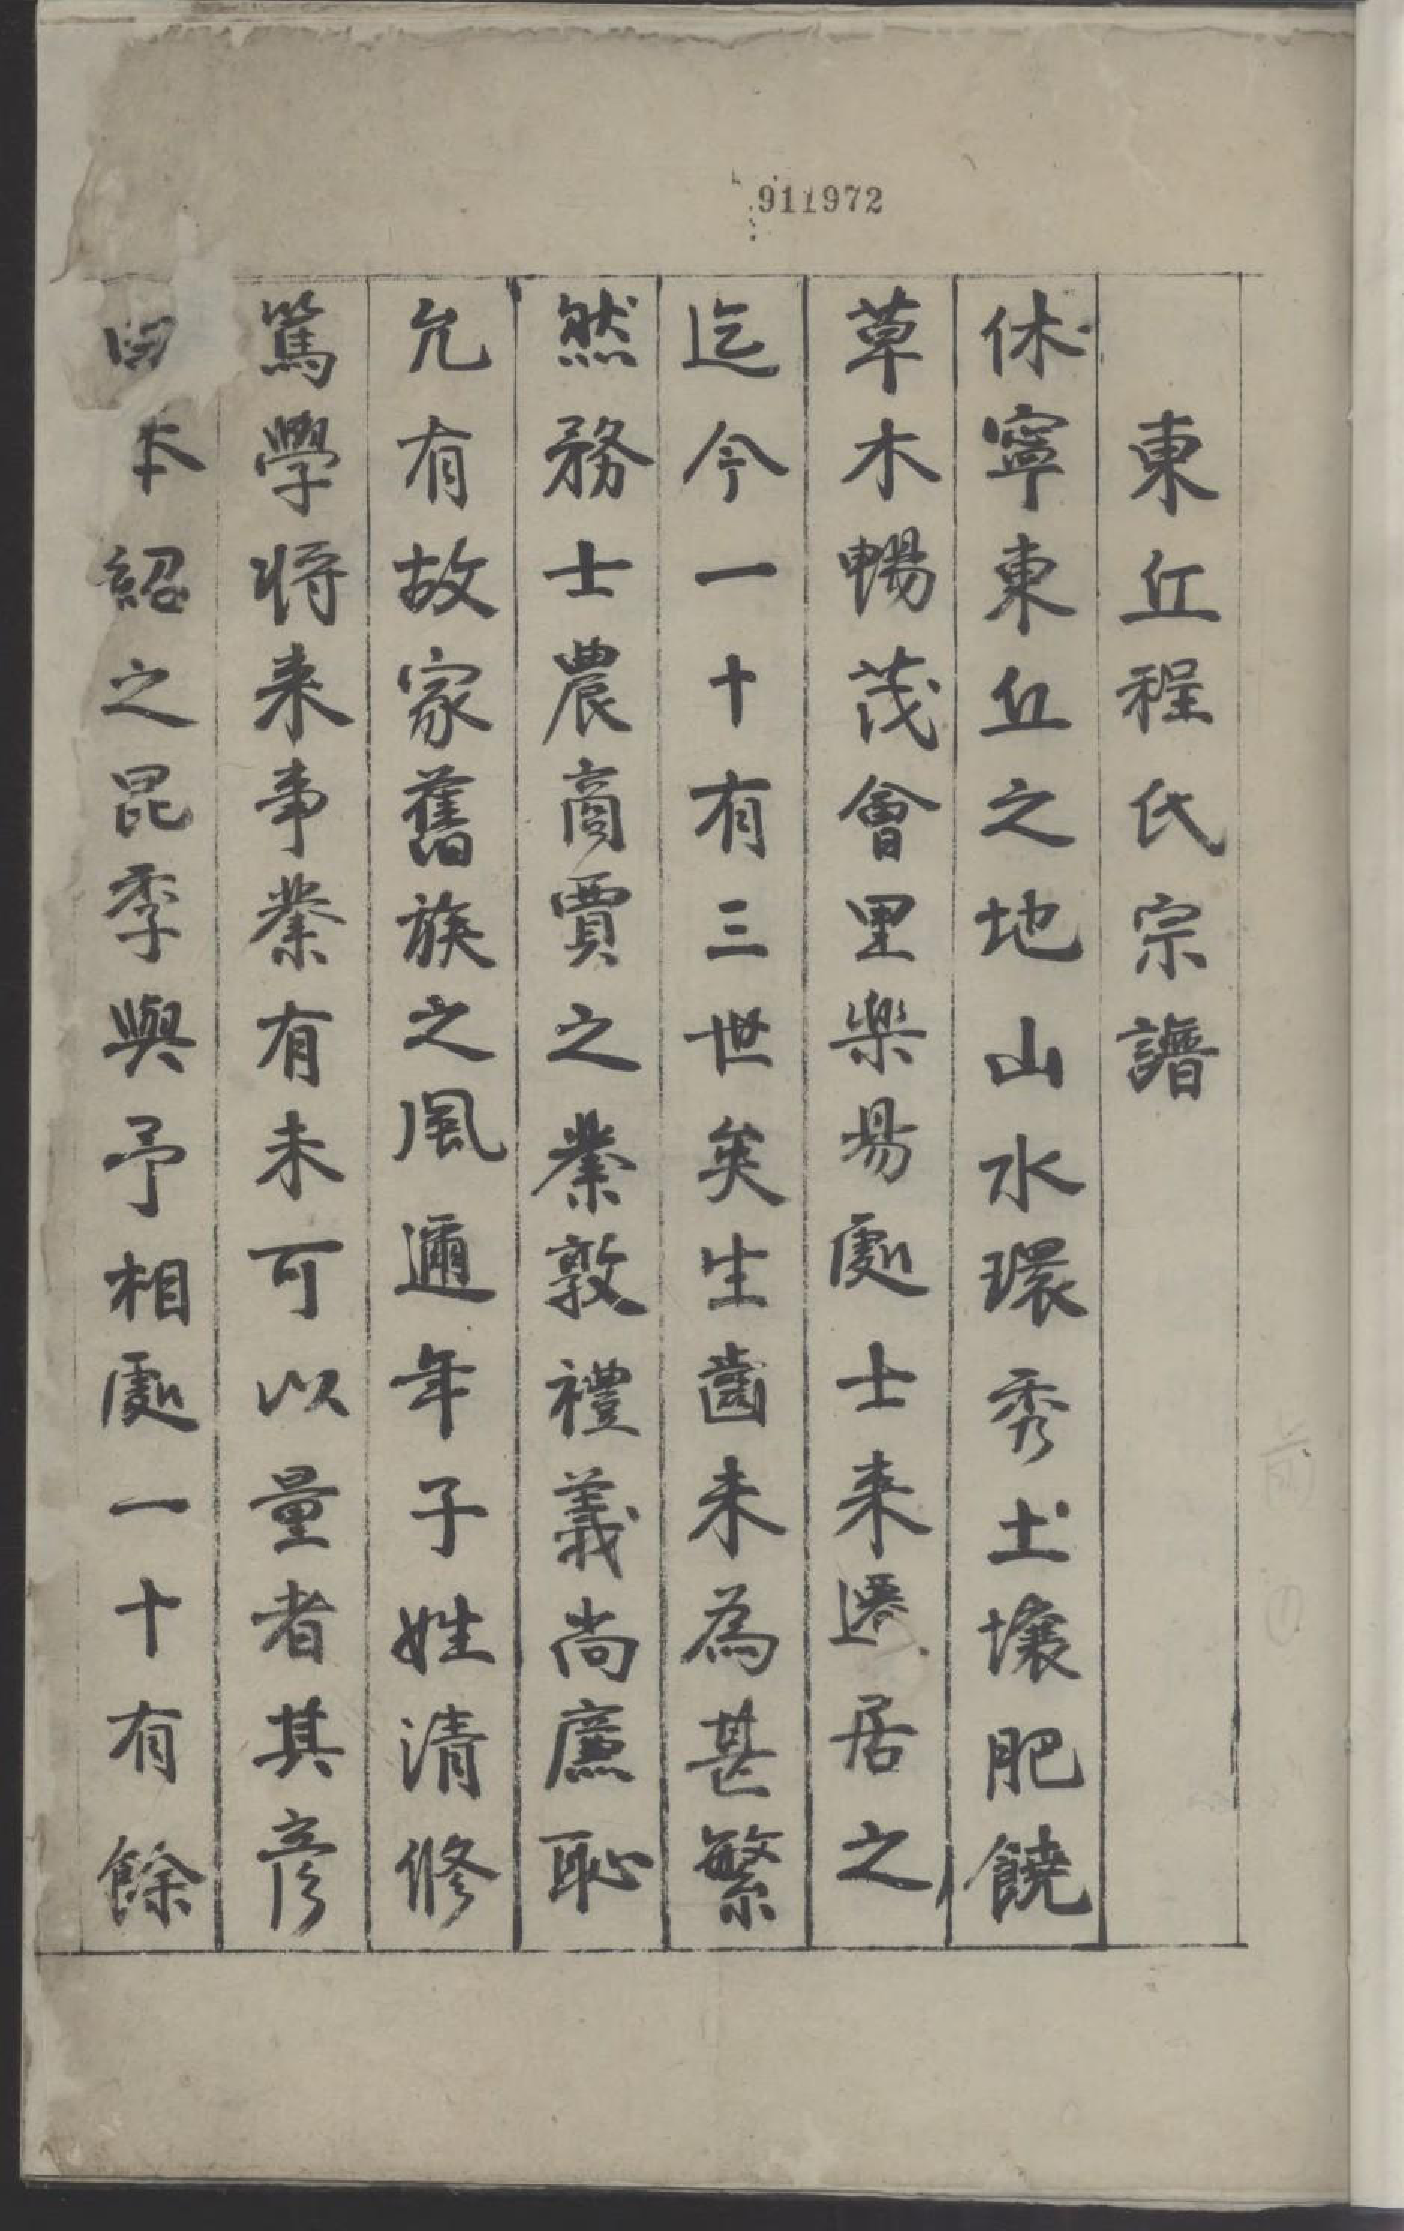 911972
東丘程氏宗譜
休寧東丘之地山水環秀土壤肥饒
草木暢茂會里樂易處士来遷居之
迄今一十有三世矣生齒未為甚繁
然務士農商賈之業敦禮義尚廉恥
允有故家舊族之風邇年子姓清修
篤學将来事業有未可以量者其彦
曰本紹之昆季與予相處一十有餘